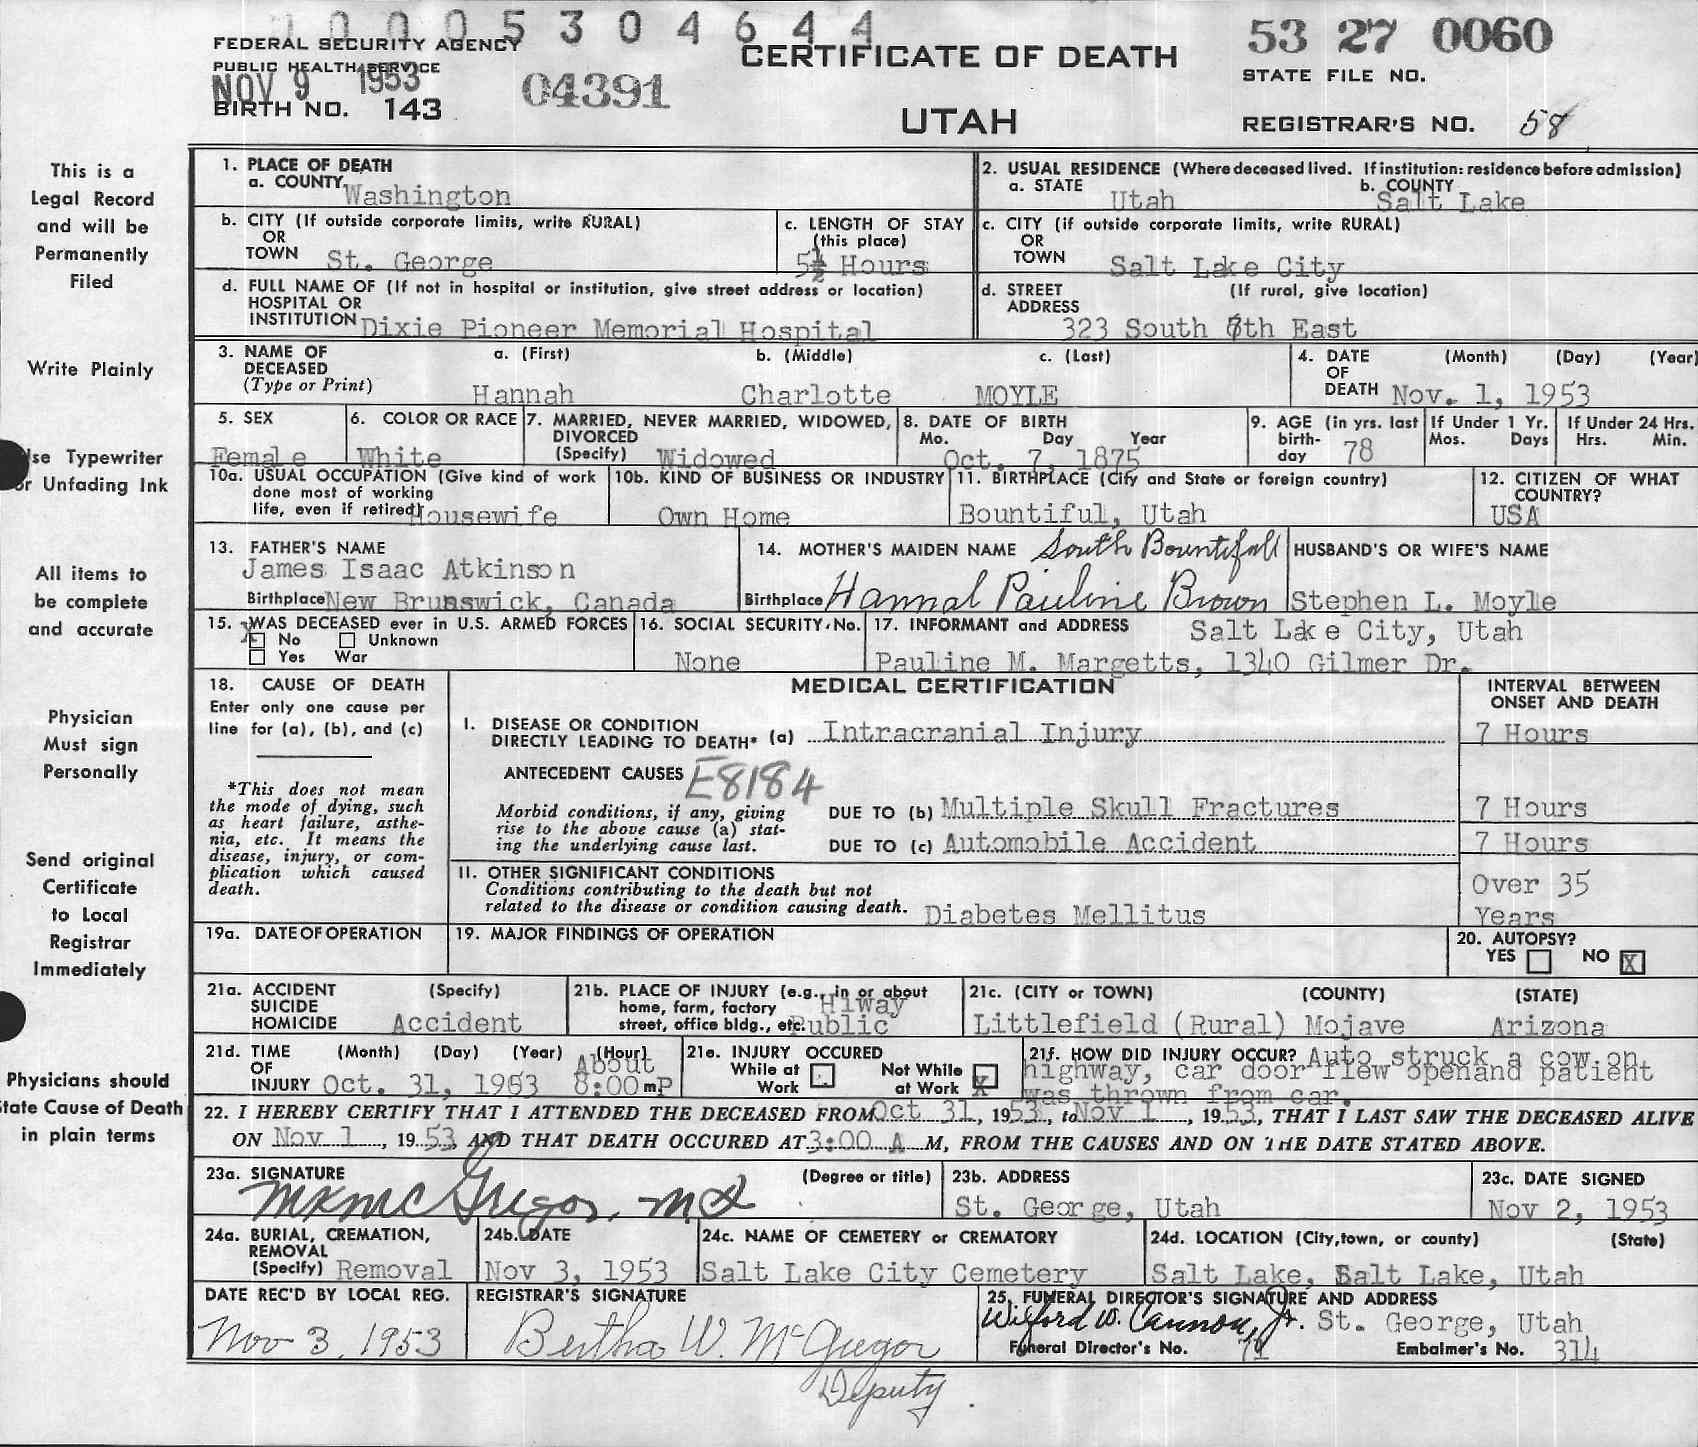 1 0 0 0 5 3 0 4 6 4 4
FEDERAL SECURITY AGENCY
PUBLIC HEALTH SERVICE
NOV 9 1953
BIRTH NO. 143
04391
CERTIFICATE OF DEATH
UTAH
53 27 0060
STATE FILE NO.
REGISTRAR'S NO. 58
This is a
Legal Record
and will be
Permanently
Filed
Write Plainly
se Typewriter
or Unfading Ink
All items to
be complete
and accurate
Physician
Must sign
Personally
Send original
Certificate
to Local
Registrar
Immediately
Physicians should
tate Cause of Death
in plain terms
1. PLACE OF DEATH
a. COUNTY Washington
2. USUAL RESIDENCE (Where deceased lived. If institution: residence before admission)
a. STATE Utah b. COUNTY Salt Lake
b. CITY (If outside corporate limits, write RURAL)
OR
TOWN St. George
c. LENGTH OF STAY
(this place)
5½ Hours
c. CITY (if outside corporate limits, write RURAL)
OR
TOWN Salt Lake City
d. FULL NAME OF (If not in hospital or institution, give street address or location)
HOSPITAL OR
INSTITUTION Dixie Pioneer Memorial Hospital
d. STREET (If rural, give location)
ADDRESS 323 South 7th East
3. NAME OF a. (First) b. (Middle) c. (Last)
DECEASED
(Type or Print) Hannah Charlotte MOYLE
4. DATE (Month) (Day) (Year)
OF
DEATH Nov. 1, 1953
5. SEX
Female
6. COLOR OR RACE
White
7. MARRIED, NEVER MARRIED, WIDOWED,
DIVORCED
(Specify) Widowed
8. DATE OF BIRTH
Mo. Day Year
Oct. 7, 1875
9. AGE (in yrs. last
birth-
day 78
If Under 1 Yr.
Mos. Days
If Under 24 Hrs.
Hrs. Min.
10a. USUAL OCCUPATION (Give kind of work
done most of working
life, even if retired) Housewife
10b. KIND OF BUSINESS OR INDUSTRY
Own Home
11. BIRTHPLACE (City and State or foreign country)
Bountiful, Utah
12. CITIZEN OF WHAT
COUNTRY?
USA
13. FATHER'S NAME
James Isaac Atkinson
Birthplace New Brunswick, Canada
14. MOTHER'S MAIDEN NAME South Bountifull
Birthplace Hannal Pauline Brown
HUSBAND'S OR WIFE'S NAME
Stephen L. Moyle
15. WAS DECEASED ever in U.S. ARMED FORCES
X No Unknown
Yes War
16. SOCIAL SECURITY No.
None
17. INFORMANT and ADDRESS Salt Lake City, Utah
Pauline M. Margetts, 1340 Gilmer Dr.
18. CAUSE OF DEATH
Enter only one cause per
line for (a), (b), and (c)
*This does not mean
the mode of dying, such
as heart failure, asthe-
nia, etc. It means the
disease, injury, or com-
plication which caused
death.
MEDICAL CERTIFICATION
INTERVAL BETWEEN
ONSET AND DEATH
I. DISEASE OR CONDITION
DIRECTLY LEADING TO DEATH* (a) Intracranial Injury 7 Hours
ANTECEDENT CAUSES E8184
Morbid conditions, if any, giving
rise to the above cause (a) stat-
ing the underlying cause last.
DUE TO (b) Multiple Skull Fractures 7 Hours
DUE TO (c) Automobile Accident 7 Hours
11. OTHER SIGNIFICANT CONDITIONS
Conditions contributing to the death but not
related to the disease or condition causing death. Diabetes Mellitus
Over 35
Years
19a. DATE OF OPERATION
19. MAJOR FINDINGS OF OPERATION
20. AUTOPSY?
YES NO X
21a. ACCIDENT (Specify)
SUICIDE
HOMICIDE Accident
21b. PLACE OF INJURY (e.g., in or about
home, farm, factory Hiway
street, office bldg., etc. Public
21c. (CITY or TOWN) (COUNTY) (STATE)
Littlefield (Rural) Mojave Arizona
21d. TIME (Month) (Day) (Year) (Hour)
OF About
INJURY Oct. 31, 1953 8:00 m P
21e. INJURY OCCURED
While at Work Not While at Work X
21f. HOW DID INJURY OCCUR? Auto struck a cow on
highway, car door flew openand patient
was thrown from car.
22. I HEREBY CERTIFY THAT I ATTENDED THE DECEASED FROM Oct 31, 1953, to Nov 1, 1953, THAT I LAST SAW THE DECEASED ALIVE
ON Nov 1, 1953 AND THAT DEATH OCCURED AT 3:00 A M, FROM THE CAUSES AND ON THE DATE STATED ABOVE.
23a. SIGNATURE (Degree or title)
McGregor, M.D.
23b. ADDRESS
St. George, Utah
23c. DATE SIGNED
Nov 2, 1953
24a. BURIAL, CREMATION,
REMOVAL
(Specify) Removal
24b. DATE
Nov 3, 1953
24c. NAME OF CEMETERY or CREMATORY
Salt Lake City Cemetery
24d. LOCATION (City, town, or county) (State)
Salt Lake, Salt Lake, Utah
DATE REC'D BY LOCAL REG.
Nov 3, 1953
REGISTRAR'S SIGNATURE
Bertha W. McGregor
Deputy
25. FUNERAL DIRECTOR'S SIGNATURE AND ADDRESS
Wilford W. Cannon, Jr. St. George, Utah
Funeral Director's No. 71 Embalmer's No. 314